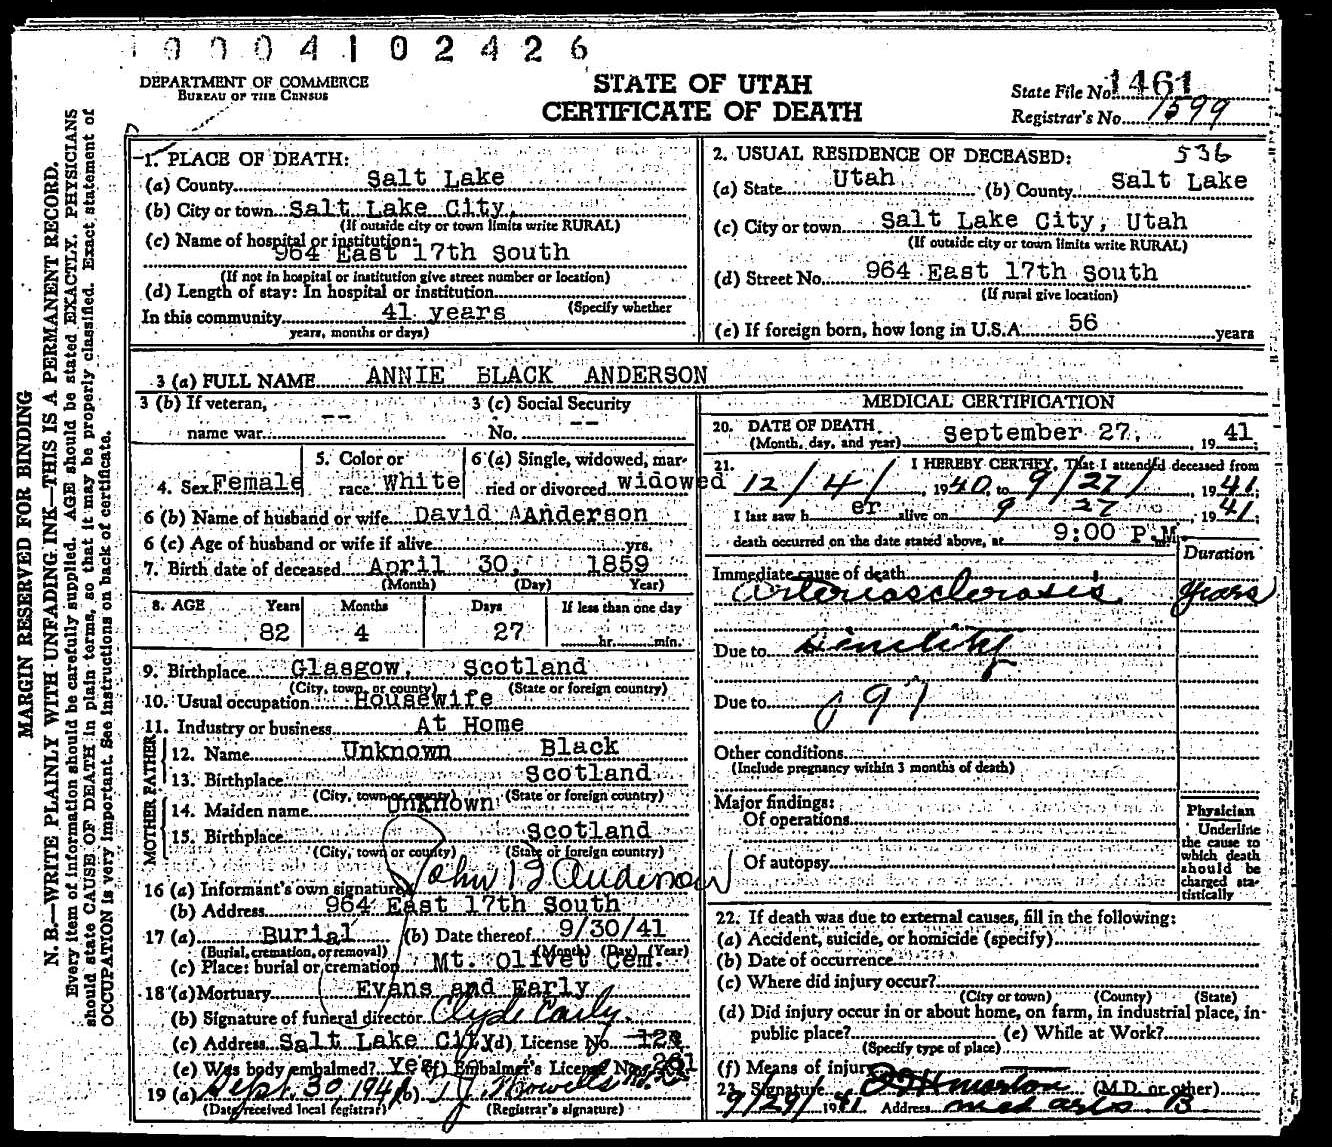 0004102426
DEPARTMENT OF COMMERCE
BUREAU OF THE CENSUS
STATE OF UTAH
CERTIFICATE OF DEATH
State File No. 1461
Registrar's No. 1599
MARGIN RESERVED FOR BINDING
N. B.—WRITE PLAINLY WITH UNFADING INK—THIS IS A PERMANENT RECORD.
Every item of information should be carefully supplied. AGE should be stated EXACTLY. PHYSICIANS
should state CAUSE OF DEATH in plain terms, so that it may be properly classified. Exact statement of
OCCUPATION is very important. See instructions on back of certificate.
1. PLACE OF DEATH:
(a) County Salt Lake
(b) City or town Salt Lake City,
(If outside city or town limits write RURAL)
(c) Name of hospital or institution:
964 East 17th South
(If not in hospital or institution give street number or location)
(d) Length of stay: In hospital or institution
(Specify whether
In this community 41 years
years, months or days)
2. USUAL RESIDENCE OF DECEASED: 536
(a) State Utah (b) County Salt Lake
(c) City or town Salt Lake City, Utah
(If outside city or town limits write RURAL)
(d) Street No. 964 East 17th South
(If rural give location)
(e) If foreign born, how long in U.S.A. 56 years
3 (a) FULL NAME ANNIE BLACK ANDERSON
3 (b) If veteran, name war -- 
3 (c) Social Security No. --
4. Sex Female
5. Color or race White
6 (a) Single, widowed, married or divorced widowed
6 (b) Name of husband or wife David A Anderson
6 (c) Age of husband or wife if alive yrs.
7. Birth date of deceased April 30, 1859
(Month) (Day) Year)
8. AGE Years Months Days If less than one day
82 4 27 hr. min.
9. Birthplace Glasgow, Scotland
(City, town, or county) (State or foreign country)
10. Usual occupation Housewife
11. Industry or business At Home
FATHER
12. Name Unknown Black
13. Birthplace Scotland
(City, town or county) (State or foreign country)
MOTHER
14. Maiden name Unknown
15. Birthplace Scotland
(City, town or county) (State or foreign country)
16 (a) Informant's own signature John B Anderson
(b) Address 964 East 17th South
17 (a) Burial (b) Date thereof 9/30/41
(Burial, cremation, or removal) (Month) (Day) (Year)
(c) Place: burial or cremation Mt. Olivet Cem.
18 (a) Mortuary Evans and Early
(b) Signature of funeral director Clyde Early.
(c) Address Salt Lake City (d) License No.
(e) Was body embalmed? Yes (f) Embalmer's License No. 261
19 (a) Sept. 30, 1941 (b) T. J. Howells
(Date received local registrar) (Registrar's signature)
MEDICAL CERTIFICATION
20. DATE OF DEATH
(Month, day, and year) September 27, 1941
21. I HEREBY CERTIFY, That I attended deceased from
12/4/, 1940, to 9/27/, 1941;
I last saw her alive on 9 27, 1941;
death occurred on the date stated above, at 9:00 P.M.
Duration
Immediate cause of death
Arteriosclerosis Years
Due to Senility
Due to 97
Other conditions
(Include pregnancy within 3 months of death)
Major findings:
Of operations
Of autopsy
Physician
Underline
the cause to
which death
should be
charged sta-
tistically
22. If death was due to external causes, fill in the following:
(a) Accident, suicide, or homicide (specify)
(b) Date of occurrence
(c) Where did injury occur?
(City or town) (County) (State)
(d) Did injury occur in or about home, on farm, in industrial place, in-
public place? (e) While at Work?
(Specify type of place)
(f) Means of injury
23. Signature (M.D. or other)
9/29/1941 Address Med Arts B.